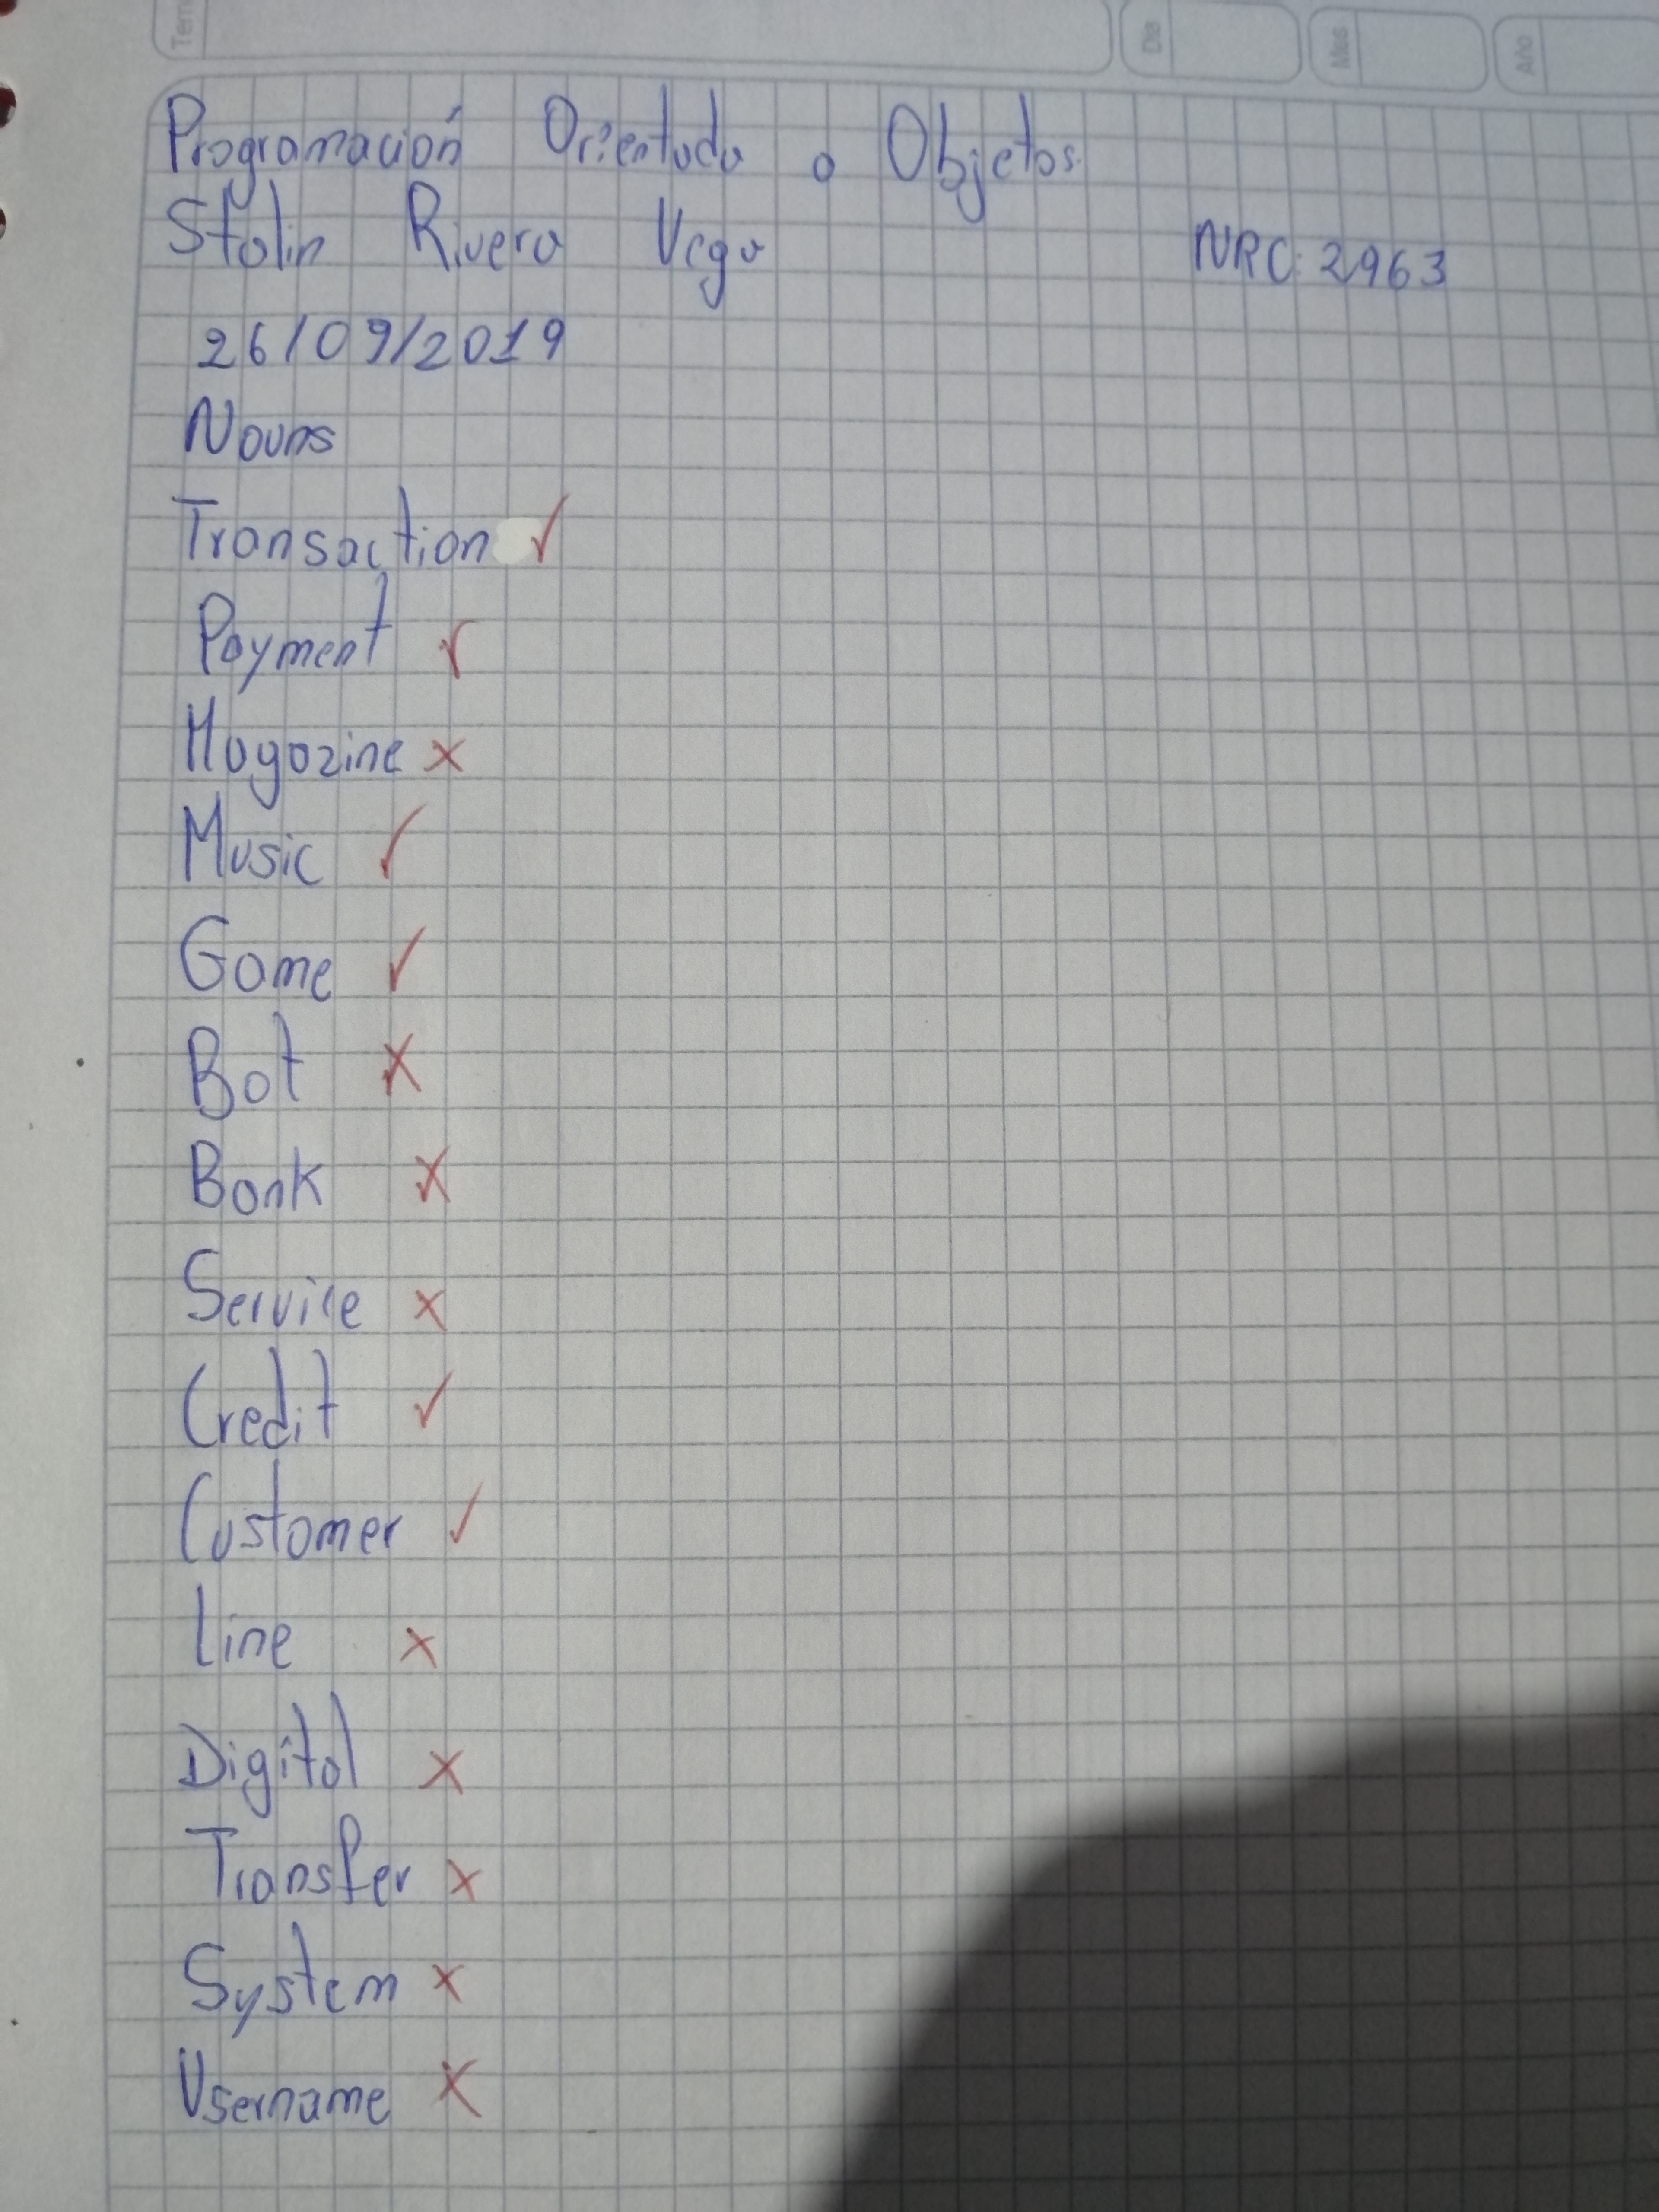 Tem
Día
Mes
Año
Programación Orientada a Objetos
Stalin Rivera Vega NRC: 2963
26/09/2019
Nouns
Transaction ✓
Payment ✓
Magazine x
Music ✓
Game ✓
Bot x
Bank x
Service x
Credit ✓
Customer ✓
Line x
Digital x
Transfer x
System x
Username x